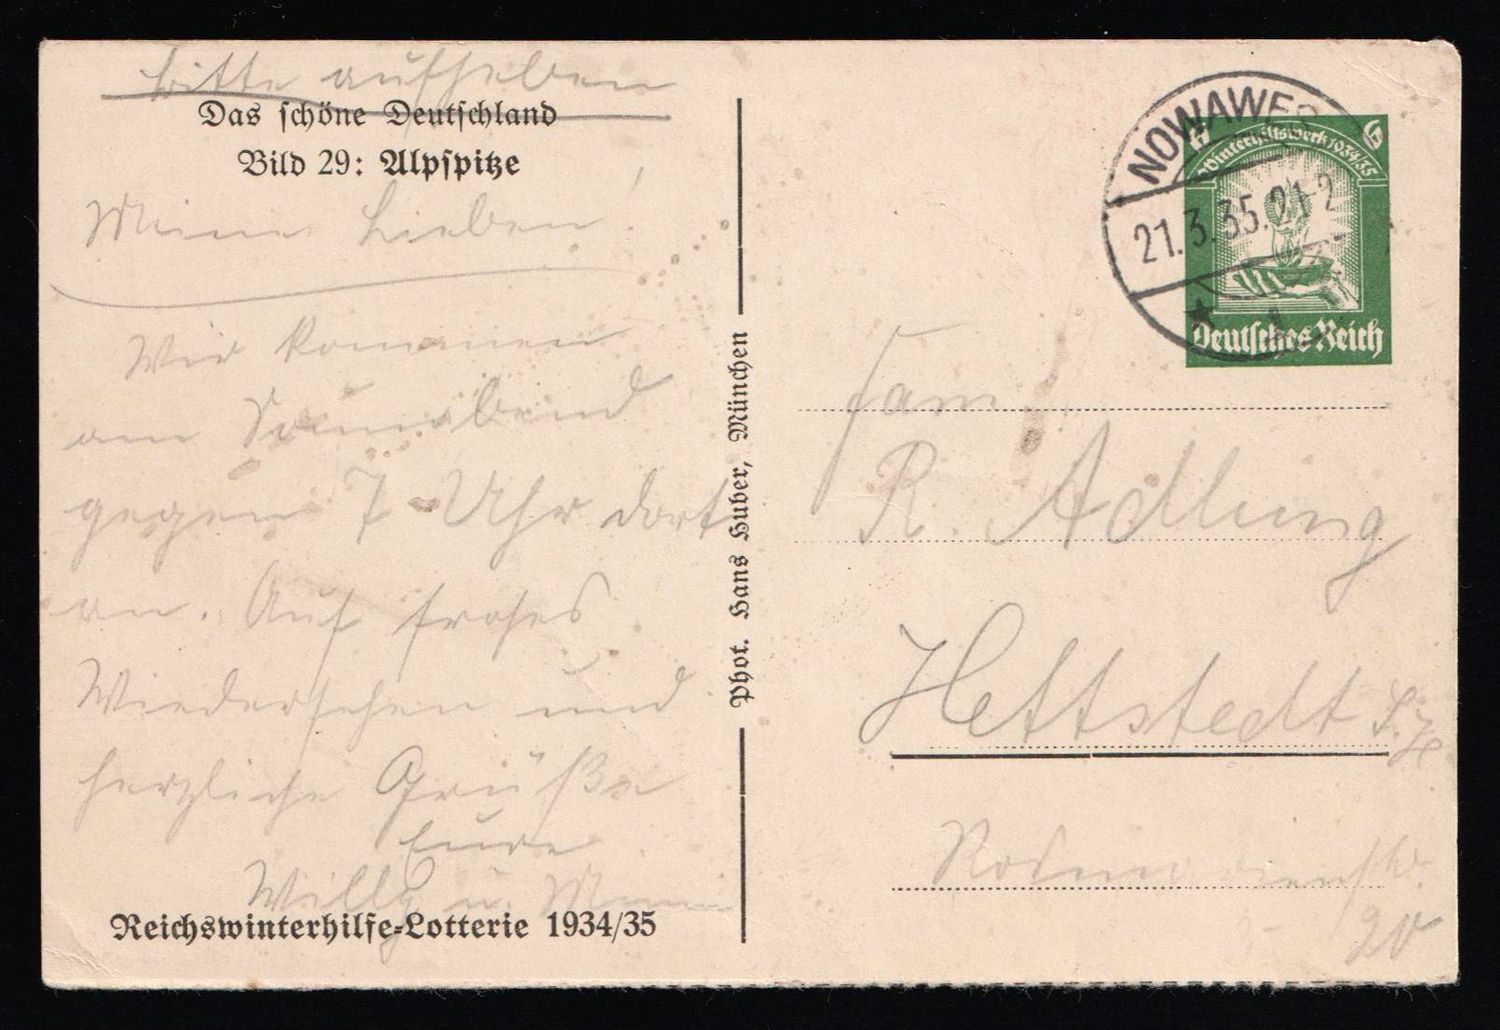 bitte aufheben
Das schöne Deutschland
Bild 29: Alpspitze
Meine Lieben!
Wir kommen
am Sonnabend
gegen 7 Uhr dort
an. Auf frohes
Wiedersehen und
herzliche Grüße
Eure
Willy u.
Reichswinterhilfe-Lotterie 1934/35
Phot. Hans Huber, München
NOWAWES
21.3.35.21-2
Winterhilfswerk 1934/35
Deutsches Reich
Fam
R. Adlung
Hettstedt
20